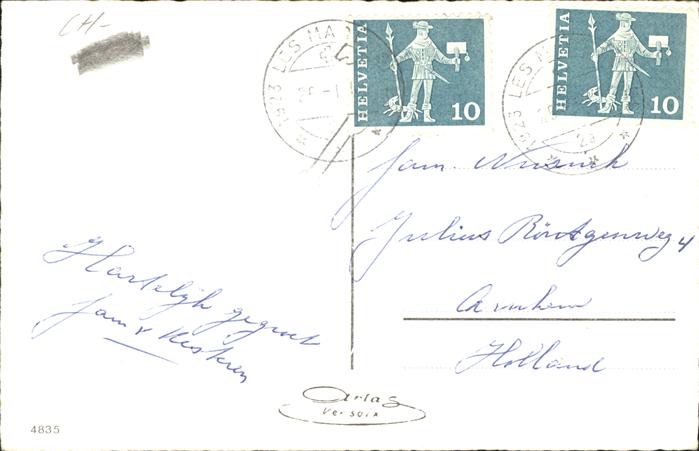 CH-
1923 LES MA
HELVETIA
10
1923 LES M
23
HELVETIA
10
Hartelijk gegroet
Jan v
Fam.
Julius Röntgenweg 4
Arnhem
Holland
Artas
Versoix
4835